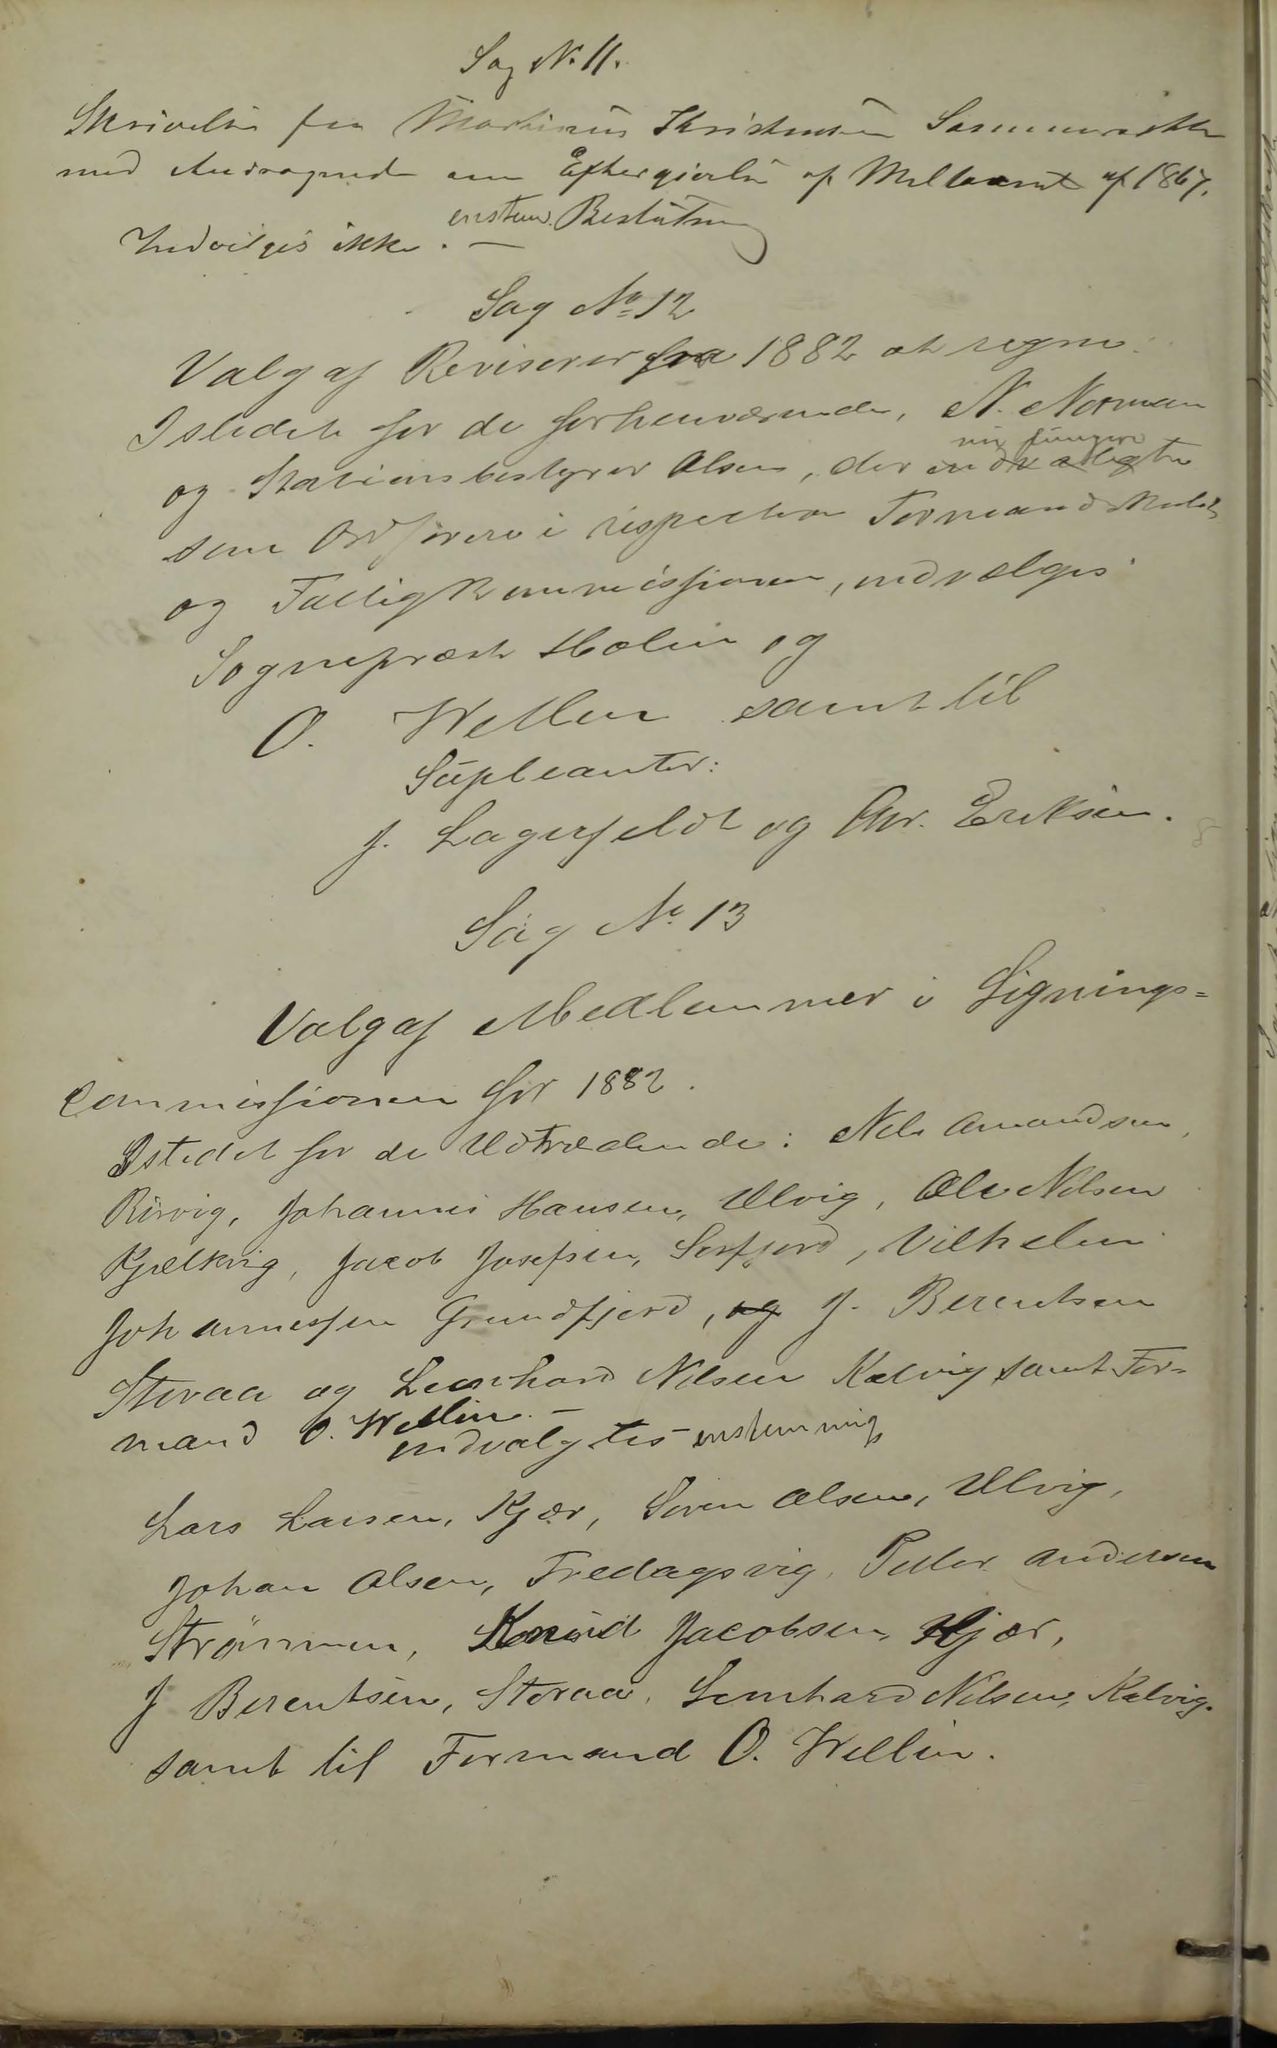 Sag N. 11.
Skrivelse fra Martinus Khristensen
med Andragende om Eftergivelse af af 1867.
enstem. Beslutning
Indvilges ikke. —
Sag No 12
Valg af Revisorer fra 1882 at regne.
Istedet for de forhenværende, N. Norman
nu fungere
og Stationsbestyrer Olsen, der
som Ordförere i respective Formandskabet
og Fattigkommissionen, indvælges
Sognepræst Holm og
O. Wellen samt til
Supleanter:
J. Lagerfeldt og Chr. Eriksen.
Sag No 13
Valg af Medlemmer i Lignings=
Commissionen for 1882.
Istedet for de Udtrædende: Nils Amandsen,
Rörvig, Johannes Hansen, Ulvig, Ole Nilsen
Kjelkvig, Jacob Josefsen, Sörfjord, Vilhelm
Johannessen Grundfjord, og J. Berentsen
Storaa og Leonhard Nilsen Kalvig samt For=
mand O. Wellin. —
indvalgtes enstemmig
Lars Larsen, Kjær, Sören Olsen, Ulvig,
Johan Olsen, Fredagsvig, Peder Andersen
Strömmen, Knud Jacobsen, Kjær,
J Berentsen, Storaa, Leonhard Nilsen, Kalvig.
samt til Formand O. Wellin.